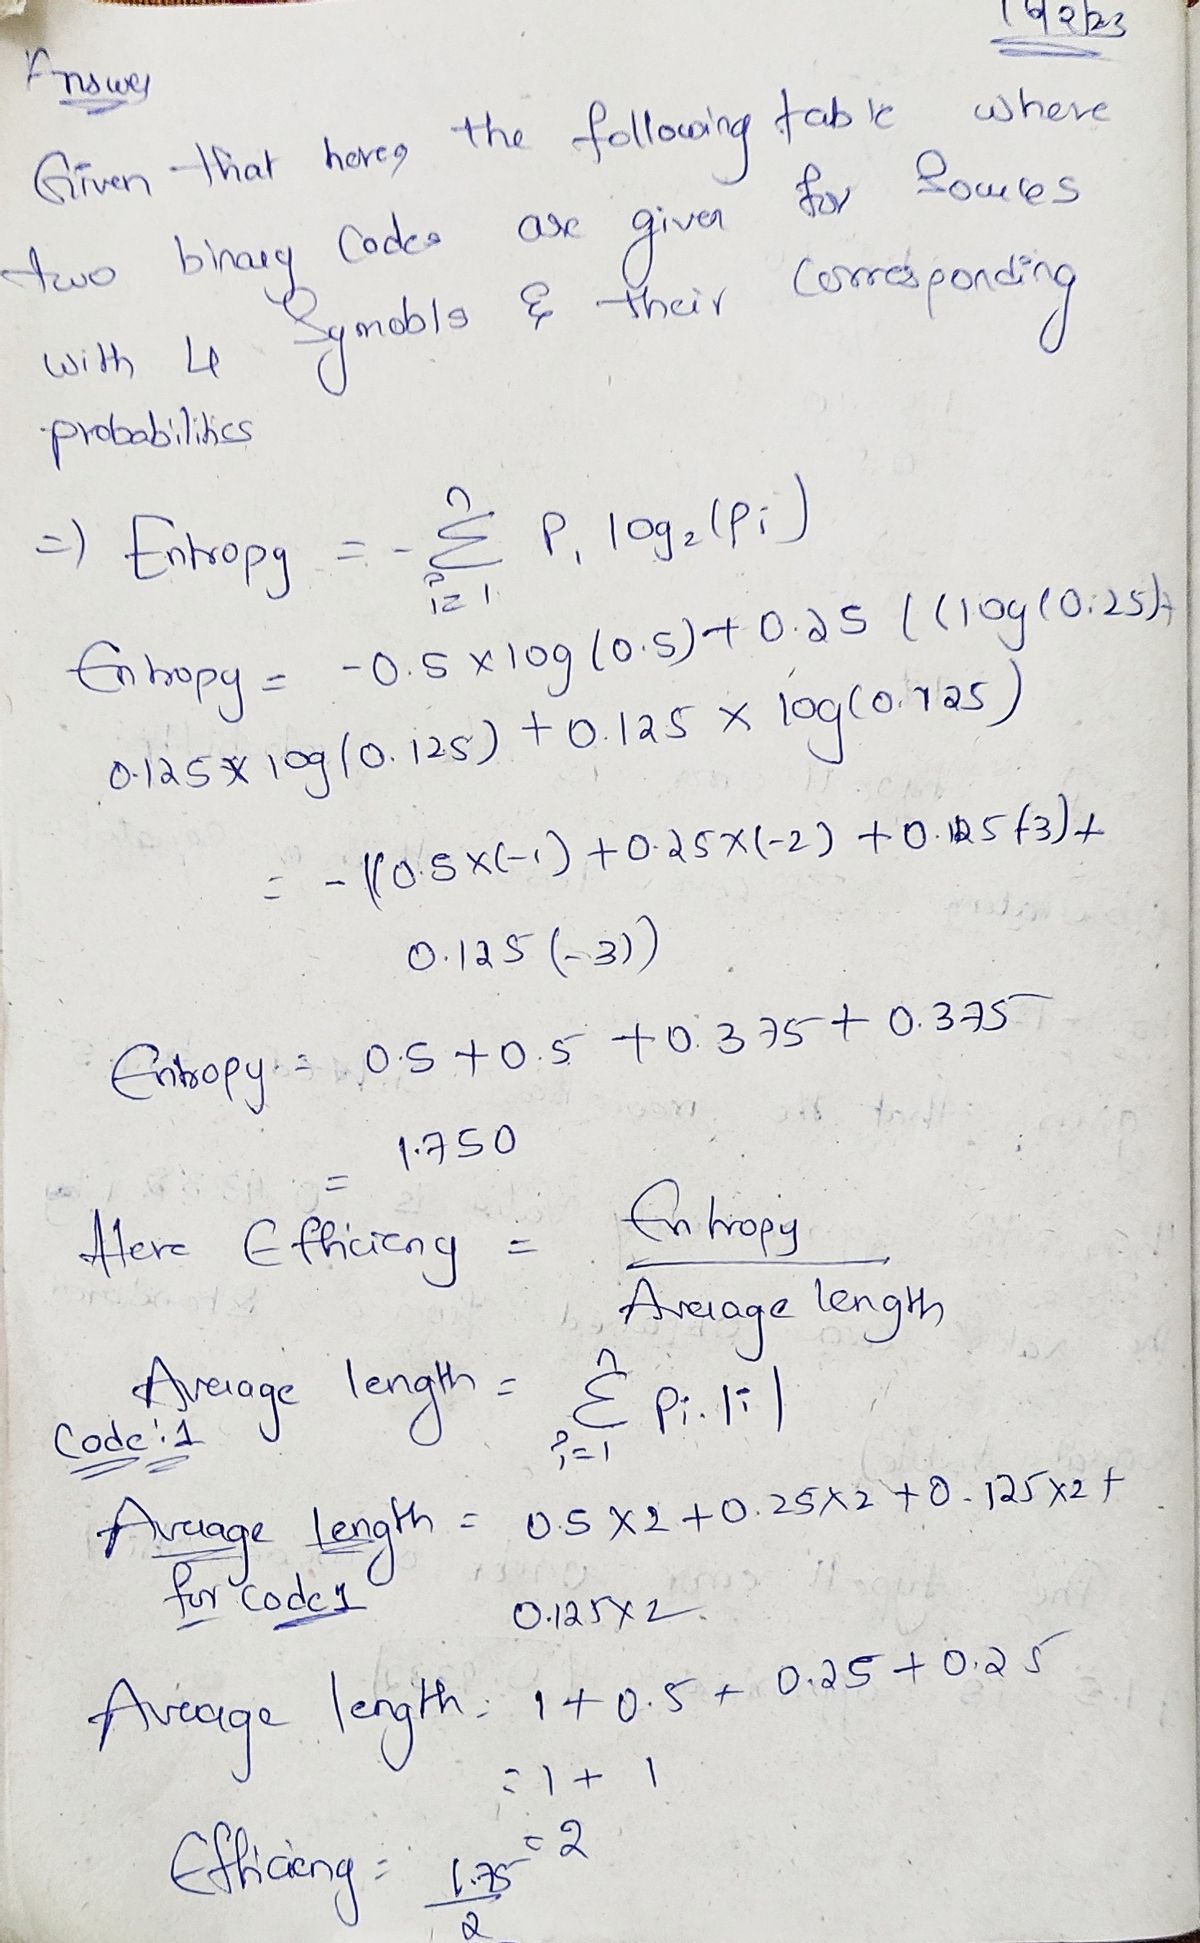 16/2/23
Answer
Given that here, the following table where
two binary codes are given for Sources
with 4 Symobls & their corresponding
probabilities
=) Entropy = - Σ P, log₂(Pi)
n
i=1
Entropy = -0.5 x log (0.5) + 0.25 ((log(0.25)+
0.125 x log(0.125) + 0.125 x log(0.125)
= -((0.5x(-1) + 0.25x(-2) + 0.125(-3)+
0.125 (-3))
Entropy = 0.5 + 0.5 + 0.375 + 0.375
= 1.750
Here Efficieny = Entropy
Average length
Average length = Σ Pi.|i|
n
i=1
Code:1
Average length = 0.5 x 2 + 0.25x2 + 0.125x2 +
for code1 0.125x2
Average length = 1 + 0.5 + 0.25 + 0.25
= 1 + 1
= 2
Efficieny = 1.75
2